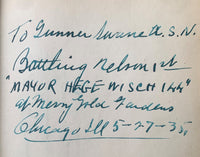 To Gunner Warne U.S.N.
Battling Nelson 1st
"MAYOR HEGEWISCH ILL"
at Merry Gold Gardens
Chicago Ill 5-27-35.